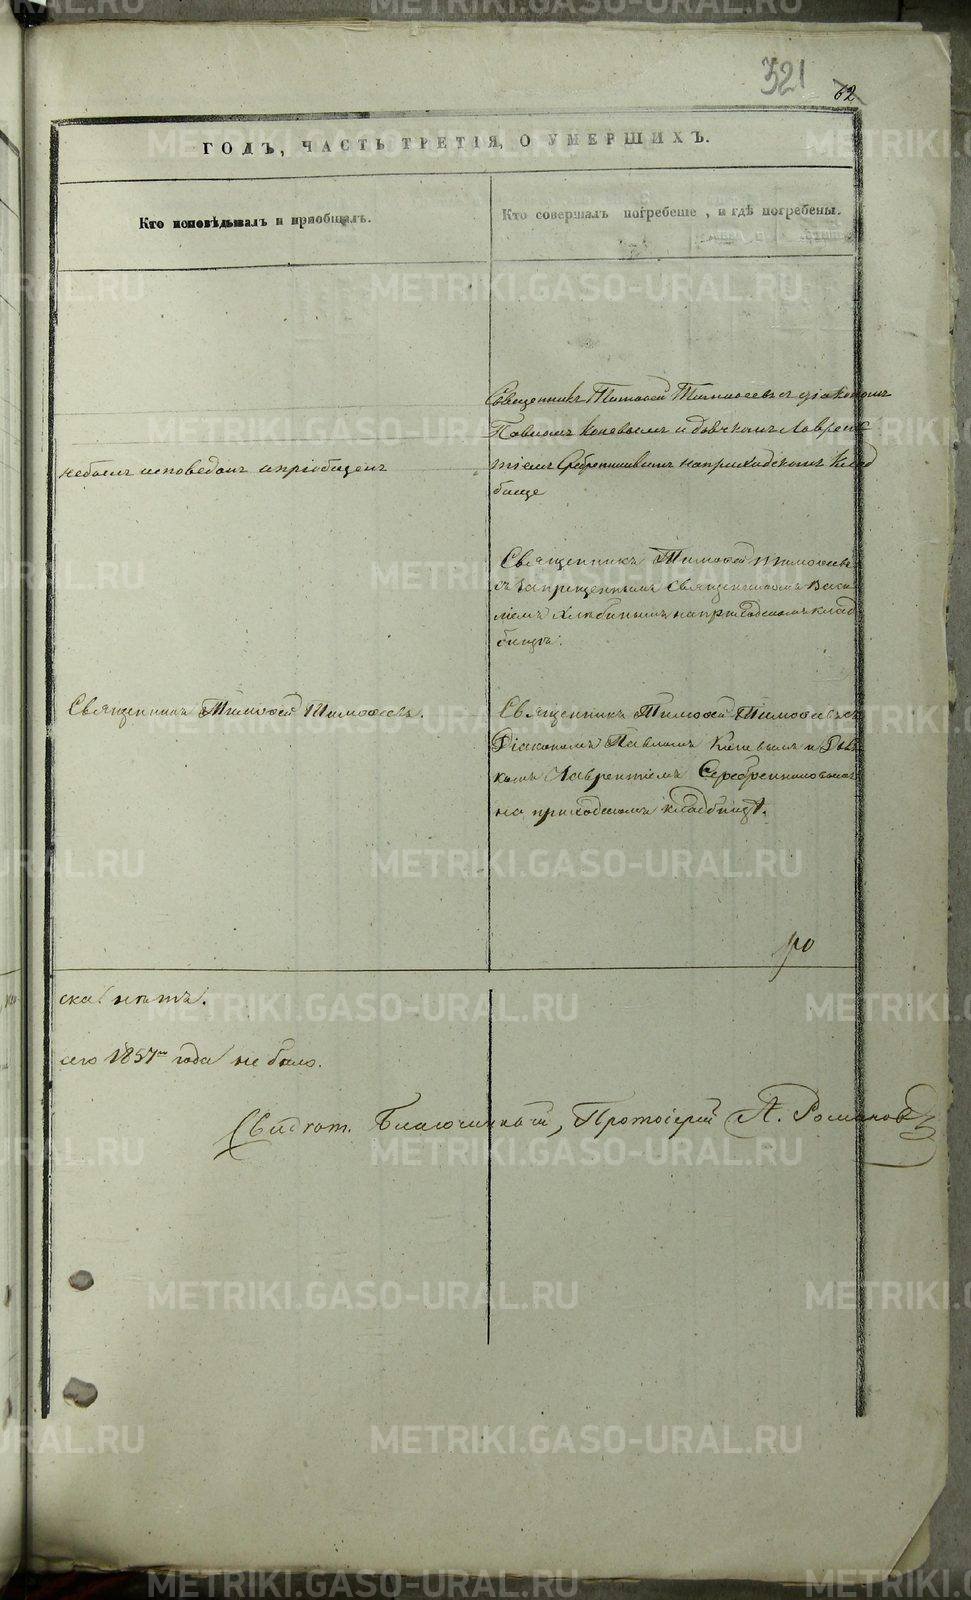 321
62
ГОДЪ, ЧАСТЬ ТРЕТІЯ, О УМЕРШИХЪ.
Кто исповѣдывалъ и пріобщалъ.
Кто совершалъ погребеніе, и гдѣ погребены.
Священникъ Тимоѳей Тимоѳеевъ съ діакономъ
Павломъ Коневымъ и дьячкомъ Лаврен
тіемъ Серебренниковымъ на приходскомъ клад
бище
небылъ исповеданъ и пріобщенъ
Священникъ Тимоѳей Тимоѳеевъ
съ запрещеннымъ священникомъ Васи
ліемъ Хлебинымъ на приходскомъ клад
бищѣ.
Священникъ Тимоѳей Тимоѳеевъ.
Священникъ Тимоѳей Тимоѳеевъ съ
Діакономъ Павломъ Коневымъ и Дьяч
комъ Лаврентіемъ Серебренниковымъ
на приходскомъ кладбищѣ.
ска нѣтъ.
сего 1857го года не было.
Свидѣт. Благочинный, Протоіерей А. Романовъ
METRIKI.GASO-URAL.RU